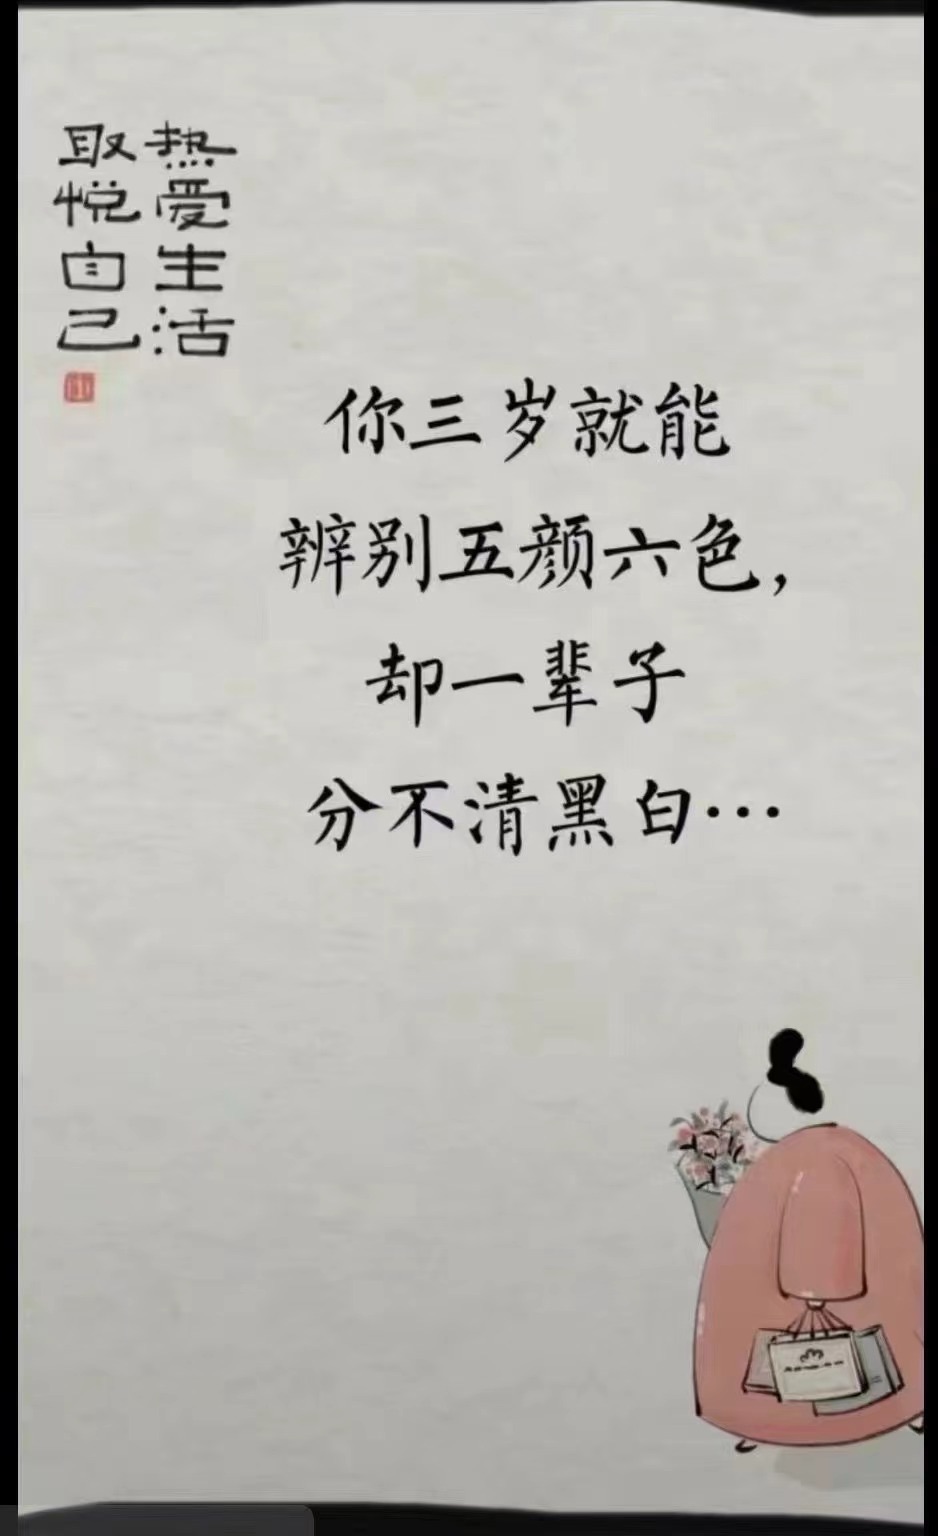 热爱生活
取悦自己
你三岁就能
辨别五颜六色，
却一辈子
分不清黑白…